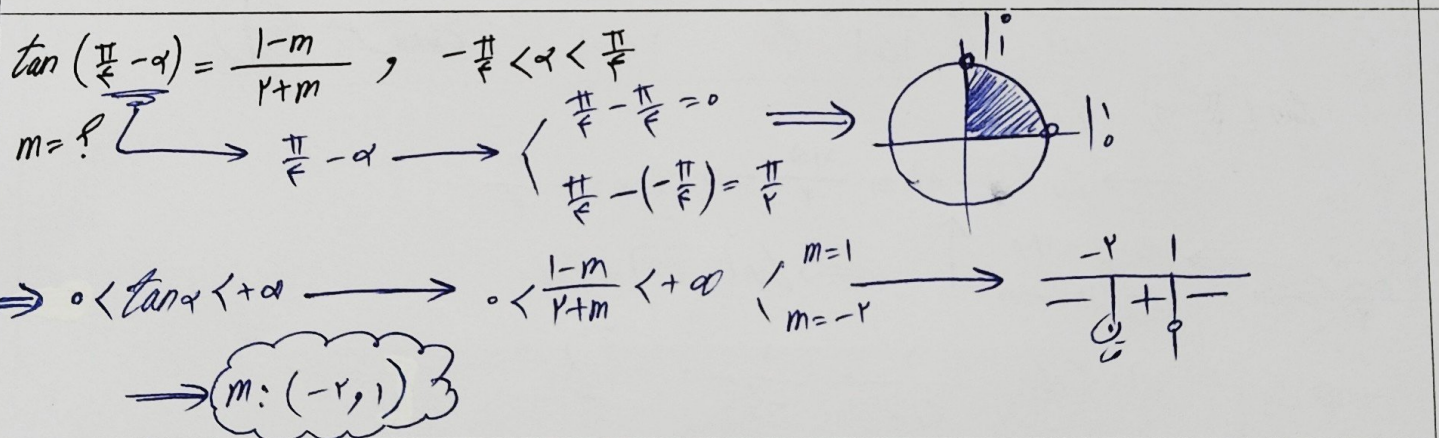 tan (π/۴ - α) = (1-m)/(۲+m) , -π/۴ < α < π/۴
m = ?
π/۴ - α → π/۴ - π/۴ = ۰
π/۴ - (-π/۴) = π/۲
⇒ |۰ ۱
|۱ ۰
⇒ ۰ < tanα < +∞ → ۰ < (1-m)/(۲+m) < +∞
m=1
m=-۲
→ -۲ 1
- + -
ت ن
→ m: (-۲, 1)